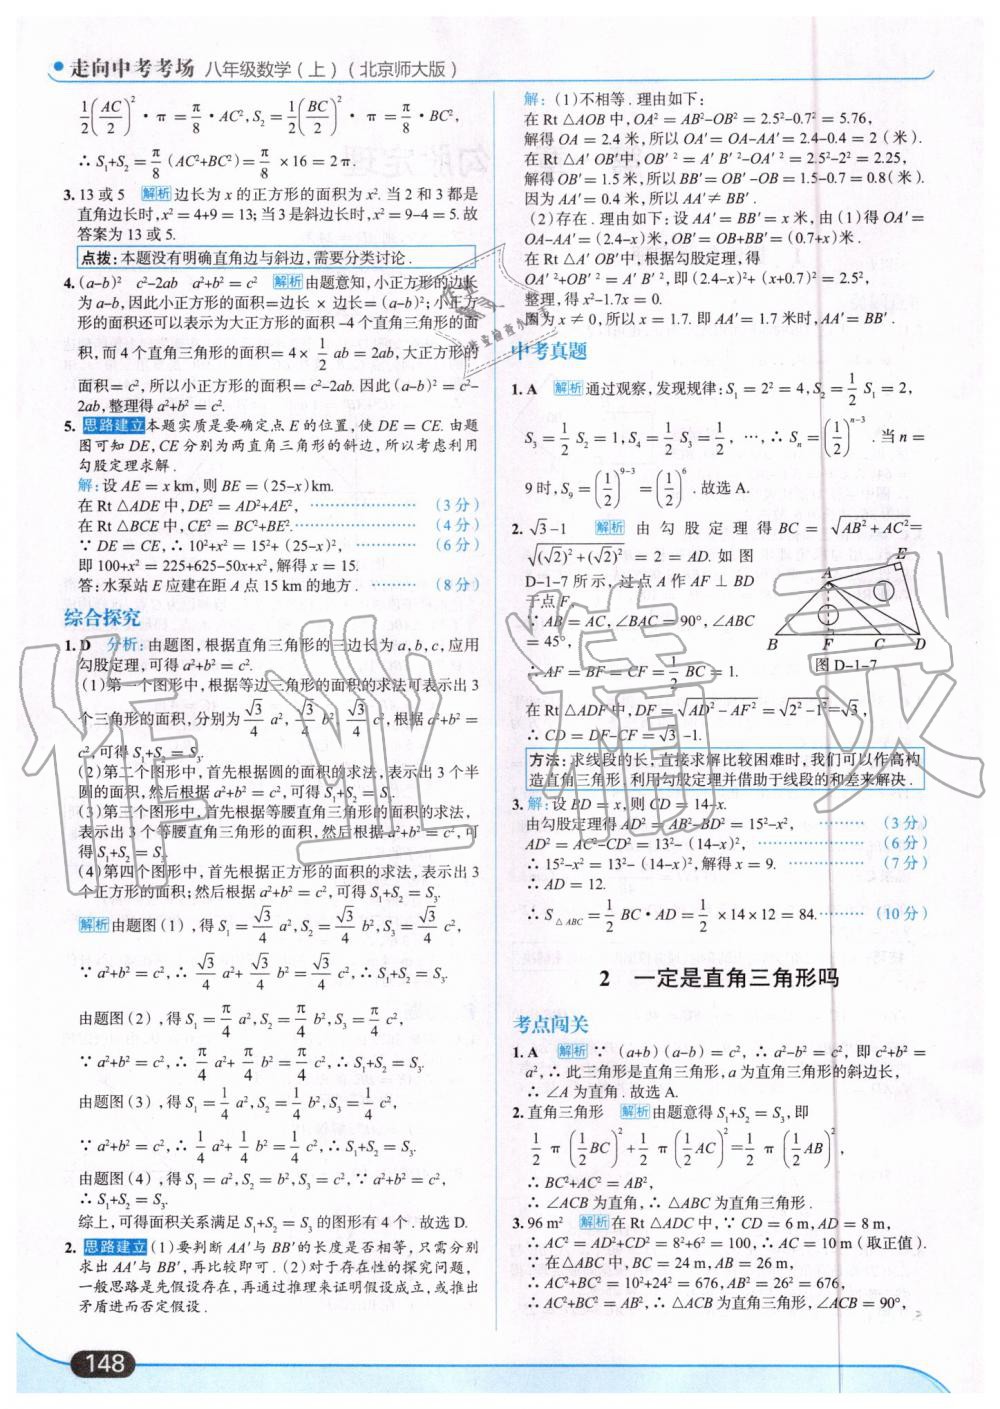 走向中考考场 八年级数学(上)(北京师大版)
1/2(AC/2)²·π=π/8·AC²,S₂=1/2(BC/2)²·π=π/8·BC²,
∴S₁+S₂=π/8(AC²+BC²)=π/8×16=2π.
3. 13或5 解析 边长为x的正方形的面积为x².当2和3都是
直角边长时,x²=4+9=13;当3是斜边长时,x²=9-4=5.故
答案为13或5.
点拨:本题没有明确直角边与斜边,需要分类讨论.
4. (a-b)² c²-2ab a²+b²=c² 解析 由题意知,小正方形的边长
为a-b,因此小正方形的面积=边长×边长=(a-b)²;小正方
形的面积还可以表示为大正方形的面积-4个直角三角形的面
积,而4个直角三角形的面积=4×1/2ab=2ab,大正方形的
面积=c²,所以小正方形的面积=c²-2ab.因此(a-b)²=c²-
2ab,整理得a²+b²=c².
5. 思路建立 本题实质是要确定点E的位置,使DE=CE.由题
图可知DE,CE分别为两直角三角形的斜边,所以考虑利用
勾股定理求解.
解:设AE=x km,则BE=(25-x)km.
在Rt△ADE中,DE²=AD²+AE², (3分)
在Rt△BCE中,CE²=BC²+BE². (4分)
∵DE=CE,∴10²+x²=15²+(25-x)², (6分)
即100+x²=225+625-50x+x²,解得x=15.
答:水泵站E应建在距A点15 km的地方. (8分)
综合探究
1. D 分析:由题图,根据直角三角形的三边长为a,b,c,应用
勾股定理,可得a²+b²=c².
(1)第一个图形中,根据等边三角形的面积的求法可表示出3
个三角形的面积,分别为√3/4a²,√3/4b²,√3/4c²,根据a²+b²=
c²,可得S₁+S₂=S₃.
(2)第二个图形中,首先根据圆的面积的求法,表示出3个半
圆的面积,然后根据a²+b²=c²,可得S₁+S₂=S₃.
(3)第三个图形中,首先根据等腰直角三角形的面积的求法,
表示出3个等腰直角三角形的面积,然后根据a²+b²=c²,可
得S₁+S₂=S₃.
(4)第四个图形中,首先根据正方形的面积的求法,表示出3
个正方形的面积;然后根据a²+b²=c²,可得S₁+S₂=S₃.
解析 由题图(1),得S₁=√3/4a²,S₂=√3/4b²,S₃=√3/4c²,
∵a²+b²=c²,∴√3/4a²+√3/4b²=√3/4c²,∴S₁+S₂=S₃.
由题图(2),得S₁=π/4a²,S₂=π/4b²,S₃=π/4c²,
∵a²+b²=c²,∴π/4a²+π/4b²=π/4c²,∴S₁+S₂=S₃.
由题图(3),得S₁=1/4a²,S₂=1/4b²,S₃=1/4c²,
∵a²+b²=c²,∴1/4a²+1/4b²=1/4c²,∴S₁+S₂=S₃.
由题图(4),得S₁=a²,S₂=b²,S₃=c²,∵a²+b²=c²,
∴S₁+S₂=S₃.
综上,可得面积关系满足S₁+S₂=S₃的图形有4个.故选D.
2. 思路建立 (1)要判断AA′与BB′的长度是否相等,只需分别
求出AA′与BB′,再比较即可.(2)对于存在性的探究问题,
一般思路是先假设存在,再通过推理来证明假设成立,或推出
矛盾进而否定假设.
148
解:(1)不相等.理由如下:
在Rt△AOB中,OA²=AB²-OB²=2.5²-0.7²=5.76,
解得OA=2.4米,所以OA′=OA-AA′=2.4-0.4=2(米).
在Rt△A′OB′中,OB′²=A′B′²-OA′²=2.5²-2²=2.25,
解得OB′=1.5米,所以BB′=OB′-OB=1.5-0.7=0.8(米).
因为AA′=0.4米,所以AA′≠BB′.
(2)存在.理由如下:设AA′=BB′=x米,由(1)得OA′=
OA-AA′=(2.4-x)米,OB′=OB+BB′=(0.7+x)米.
在Rt△A′OB′中,根据勾股定理,得
OA′²+OB′²=A′B′²,即(2.4-x)²+(0.7+x)²=2.5²,
整理,得x²-1.7x=0.
因为x≠0,所以x=1.7.即AA′=1.7米时,AA′=BB′.
中考真题
1. A 解析 通过观察,发现规律:S₁=2²=4,S₂=1/2S₁=2,
S₃=1/2S₂=1,S₄=1/2S₃=1/2,…,∴Sₙ=(1/2)ⁿ⁻³.当n=
9时,S₉=(1/2)⁹⁻³=(1/2)⁶.故选A.
2. √3-1 解析 由勾股定理得BC=√(AB²+AC²)=
√((√2)²+(√2)²)=2=AD.如图
D-1-7所示,过点A作AF⊥BD
于点F,
∵AB=AC,∠BAC=90°,∠ABC
=45°,
∴AF=BF=CF=1/2BC=1.
在Rt△ADF中,DF=√(AD²-AF²)=√(2²-1²)=√3,
∴CD=DF-CF=√3-1.
A
E
B F C D
图D-1-7
方法:求线段的长,直接求解比较困难时,我们可以作高构
造直角三角形,利用勾股定理并借助于线段的和差来解决.
3. 解:设BD=x,则CD=14-x.
由勾股定理得AD²=AB²-BD²=15²-x², (3分)
AD²=AC²-CD²=13²-(14-x)², (6分)
∴15²-x²=13²-(14-x)²,解得x=9. (7分)
∴AD=12.
∴S△ABC=1/2BC·AD=1/2×14×12=84. (10分)
2 一定是直角三角形吗
考点闯关
1. A 解析 ∵(a+b)(a-b)=c²,∴a²-b²=c²,即c²+b²=
a²,∴此三角形是直角三角形,a为直角三角形的斜边长,
∴∠A为直角.故选A.
2. 直角三角形 解析 由题意得S₁+S₂=S₃,即
1/2π(1/2BC)²+1/2π(1/2AC)²=1/2π(1/2AB)²,
∴BC²+AC²=AB²,
∴∠ACB为直角,∴△ABC为直角三角形.
3. 96 m² 解析 在Rt△ADC中,∵CD=6 m,AD=8 m,
∴AC²=AD²+CD²=8²+6²=100,∴AC=10 m(取正值).
∵在△ABC中,BC=24 m,AB=26 m,
∴AC²+BC²=10²+24²=676,AB²=26²=676,
∴AC²+BC²=AB²,∴△ABC为直角三角形,∠ACB=90°,
作业精灵